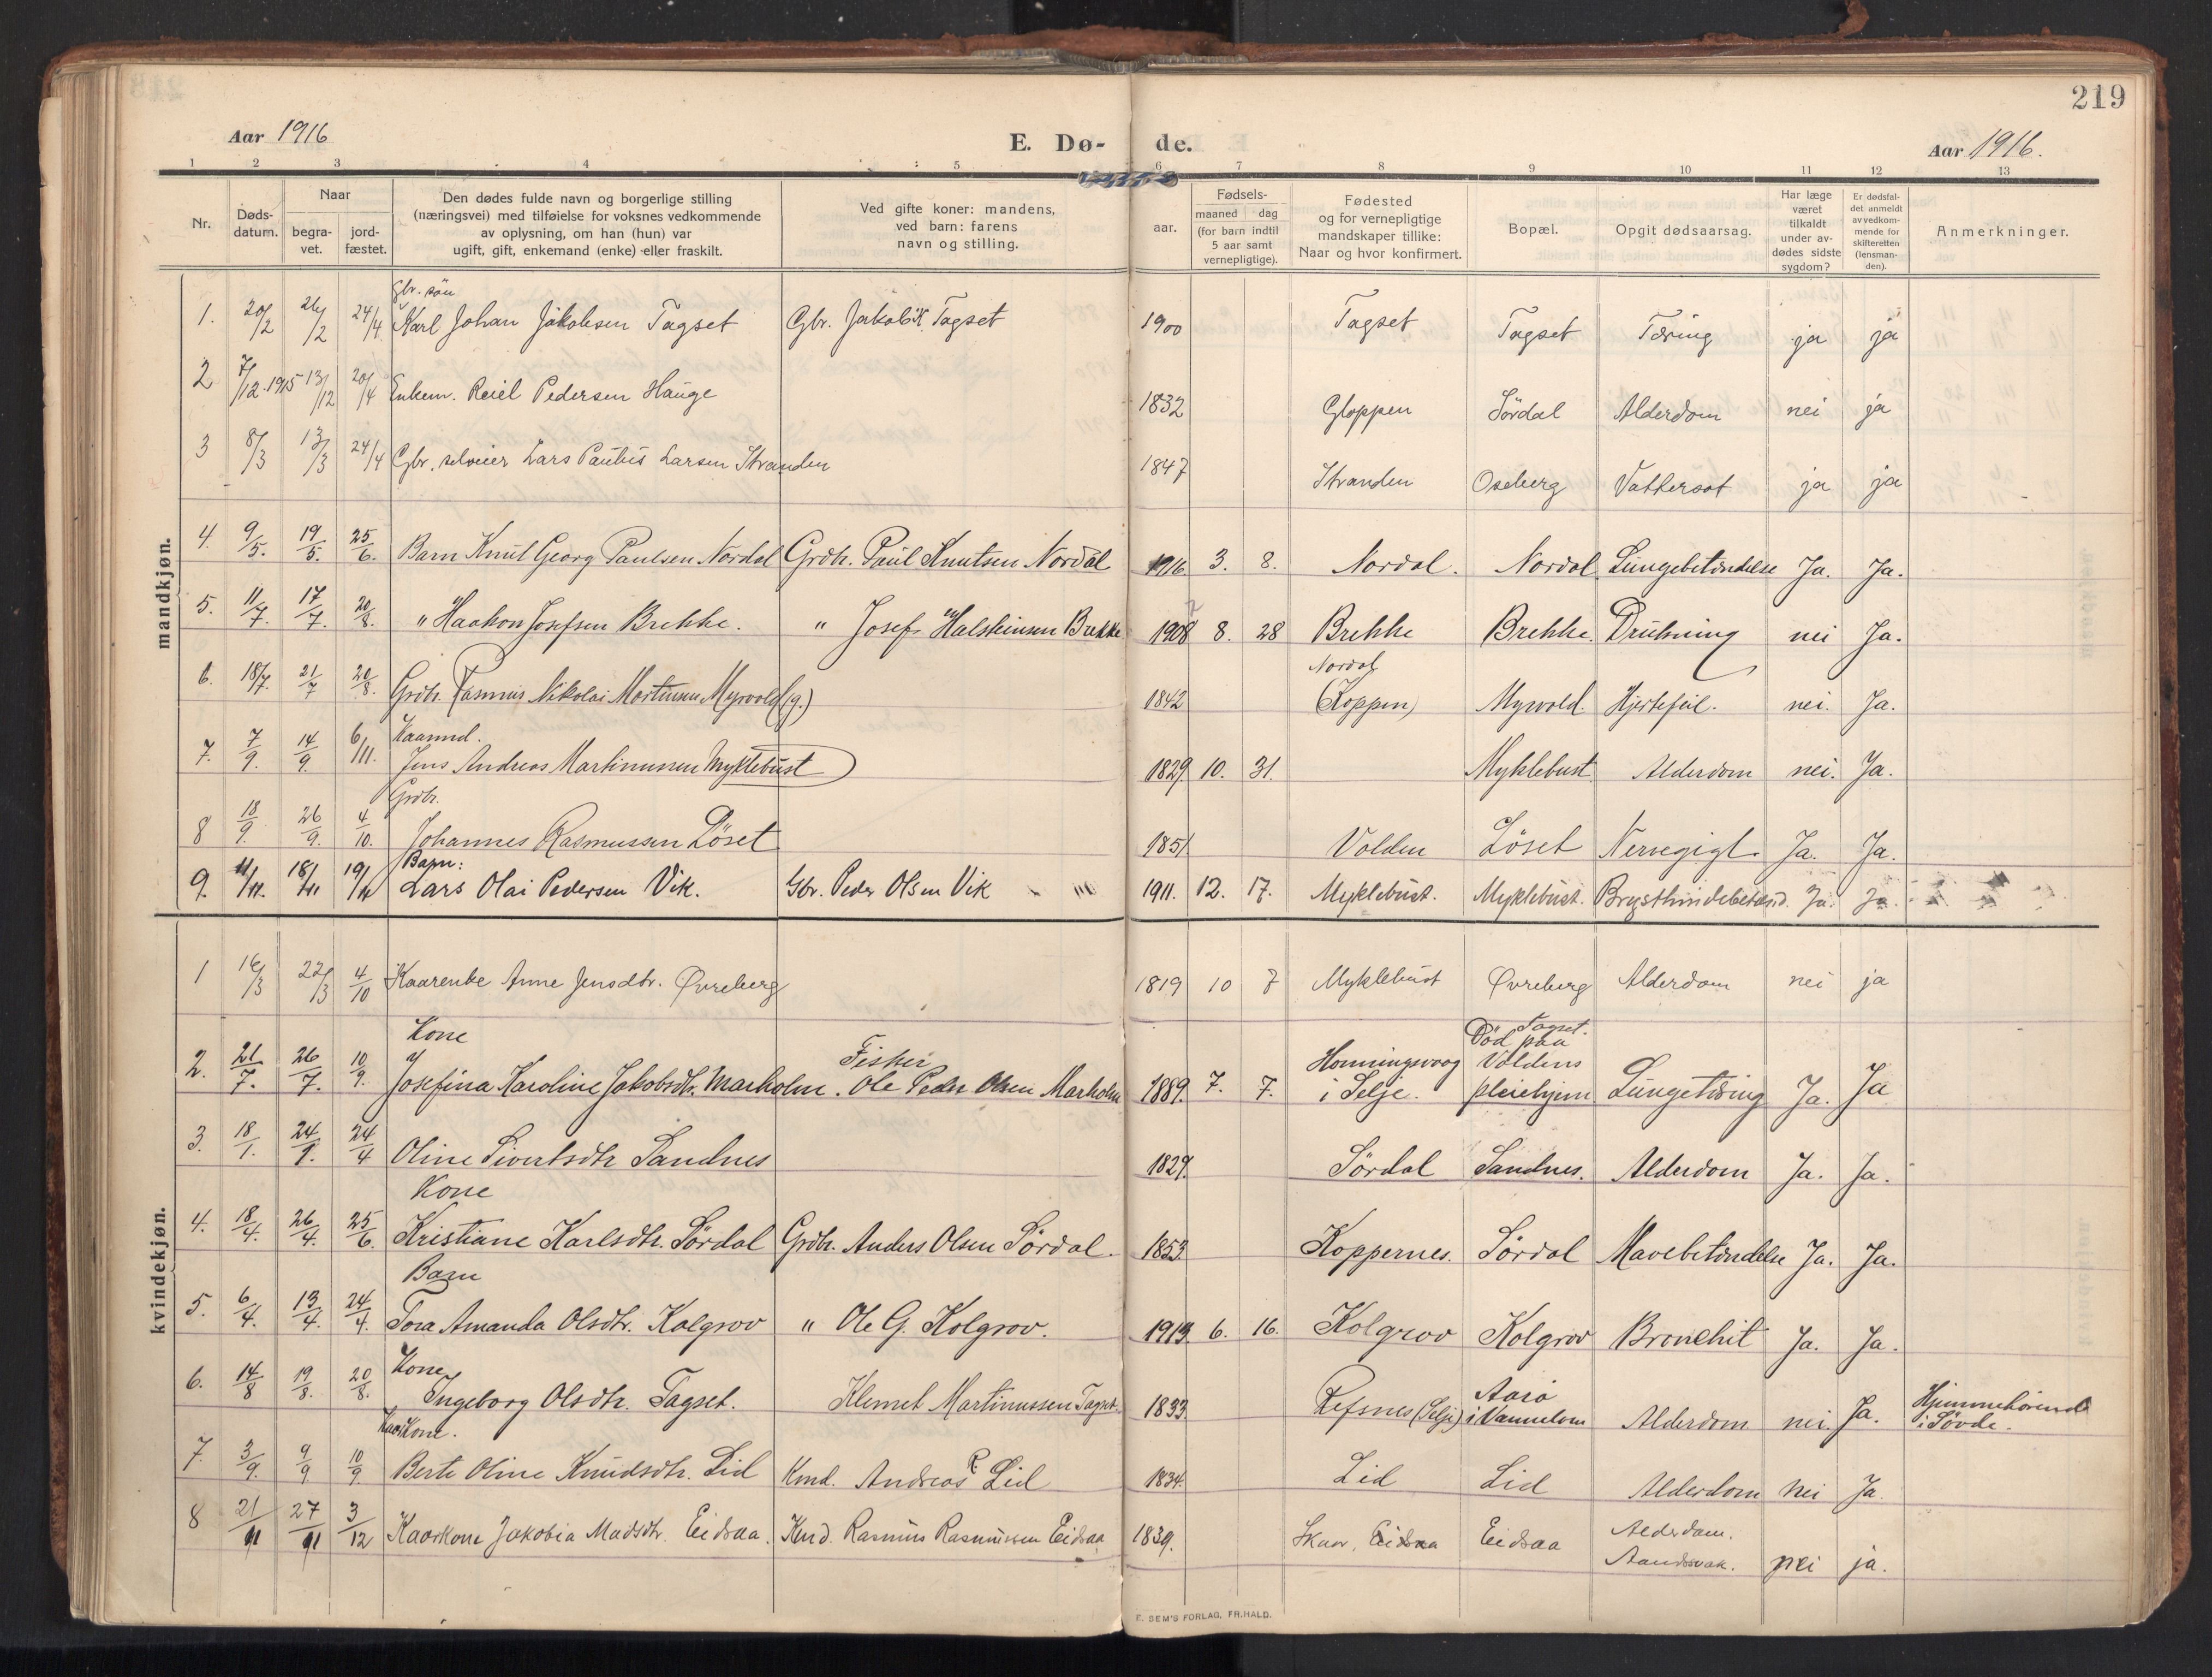 219
Aar 1916 E. Dø- de. Aar 1916.
1 2 3 4 5 6 7 8 9 10 11 12 13
Nr. Døds-datum. Naar begra-vet. jord-fæstet. Den dødes fulde navn og borgerlige stilling (næringsvei) med tilføielse for voksnes vedkommende av oplysning, om han (hun) var ugift, gift, enkemand (enke) eller fraskilt. Ved gifte koner: mandens, ved barn: farens navn og stilling. Fødsels- aar. maaned dag (for barn indtil 5 aar samt vernepligtige). Fødested og for vernepligtige mandskaper tillike: Naar og hvor konfirmert. Bopæl. Opgit dødsaarsag. Har læge været tilkaldt under av-dødes sidste sygdom? Er dødsfal-det anmeldt av vedkom-mende for skifteretten (lensman-den). Anmerkninger.
mandkjøn.
Gbr. søn
1. 20/2 26/2 24/4 Karl Johan Jakobsen Tagset Gbr. Jakob K. Tagset 1900 Tagset Tagset Tæring ja ja
2 7/12 1915 13/12 20/4 Enkem. Reiel Pedersen Hauge 1832 Gloppen Sördal Alderdom nei ja
3 8/3 13/3 24/4 Gbr. selveier Lars Paulus Larsen Stranden 1847 Stranden Oseberg Vattersot ja ja
4. 9/5. 19/5. 25/6. Barn Knut Georg Paulsen Nordal Grdbr. Paul Knutsen Nordal 1916. 3. 8. Nordal. Nordal Lungebetændelse Ja. Ja.
5. 11/7. 17/7. 20/8. " Haakon Josefsen Brekke. " Josef Halsteinsen Brekke 1908 8. 28 Brekke Brekke. Drukning nei Ja.
Nordal
6. 18/7. 21/7 20/8. Grdbr. Rasmus Nikolai Martinsen Myrvold (g.) 1842 (Koppen) Myrvold. Hjertefeil. nei. Ja.
Kaarmd.
7. 7/9. 14/9. 6/11. Jens Andreas Martinussen Myklebust 1829. 10. 31. Myklebust Alderdom nei. Ja.
Grdbr.
8 18/9. 26/9. 4/10. Johannes Rasmussen Löset 1851 Volden Löset Nervegigt. Ja. Ja.
Barn:
9. 11/11. 18/11 19/11 Lars Olai Pedersen Vik. Gbr. Peder Olsen Vik 1911. 12. 17. Myklebust. Myklebust. Brysthindebetænd. Ja. Ja.
kvindekjøn.
1 16/3 22/3 4/10 Kaarenke Anne Jensdtr. Øvreberg 1819 10 7 Myklebust Øvreberg Alderdom nei ja
Kone Fisker Tagset. Død paa
2. 21/7. 26/7. 10/9. Josefina Karoline Jakobsdtr. Marholm. Ole Peder Olsen Marholm 1889. 7. 7. Honningsvaag i Selje. Voldens pleiehjem Lungetæring Ja. Ja
3. 18/1. 24/1. 24/4 Oline Sivertsdtr Sandnes 1829. Sördal Sandnes. Alderdom Ja. Ja.
Kone
4. 18/4. 26/4. 25/6. Kristiane Karlsdtr. Sördal Grdbr. Anders Olsen Sördal. 1853. Koppernes. Sördal Mavebetændelse Ja. Ja.
Barn
5. 6/4. 13/4. 24/4. Tora Amanda Olsdtr. Kolgrov " Ole G. Kolgrov. 1913 6. 16. Kolgrov Kolgrov Bronchit Ja. Ja.
Kone
6. 14/8 19/8. 20/8. Ingeborg Olsdtr. Tagset. Klemet Martinussen Tagset. 1833 Refsnes (Selje) Aarö i Vannelven Alderdom nei. Ja. Hjemmehörende i Sövde.
Kaarkone.
7. 3/9. 9/9 10/9 Berte Oline Knudsdtr. Lid Kmd. Andreas R. Lid 1834. Lid Lid Alderdom nei Ja.
8 21/11 27/11 3/12 Kaarkone Jakobia Madsdtr. Eidsaa. Kmd. Rasmus Rasmussen Eidsaa 1839. Skaar, Eidsaa Eidsaa Alderdom. Aandssvak. nei ja.
E. SEM'S FORLAG, FR.HALD.